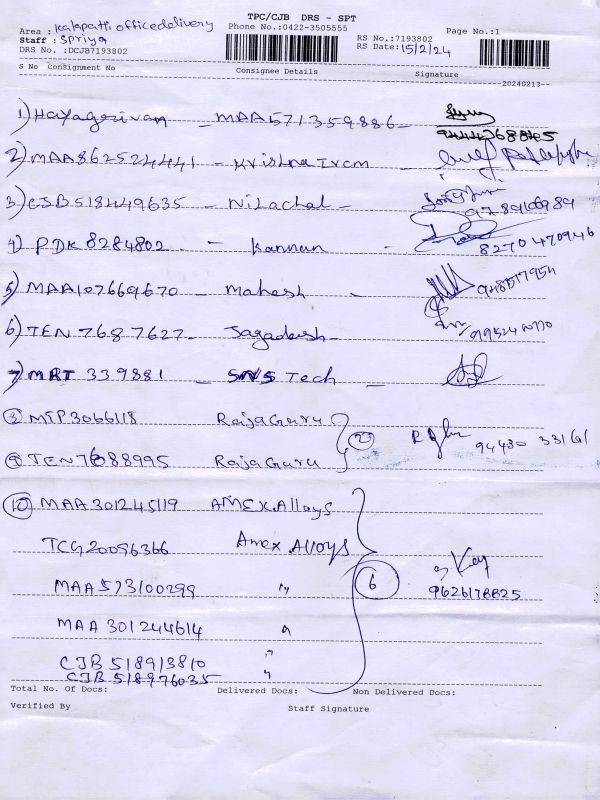 TPC/CJB DRS - SPT
Area : Kalapatti office delivery Phone No.:0422-3505555 Page No.:1
Staff : Spriya RS No.:7193802
DRS No. :DCJB7193802 RS Date: 15/2/24
S No Consignment No Consignee Details Signature
20240213
1) Hayagerivan - MAA571359886 -
2) MAA862524441 - Krishna Ircm
3) CJB518449635 - Nilachal - 9789100984
4) PDK 8284802 - Kannan - 8270470946
5) MAA107669670 - Mahesh -
6) TEN 7687627 - Jagadeesh
7) MRT 339881 - SNS Tech -
8) MTP3066118 RajaGuru
9) TEN76088995 RajaGuru
10) MAA 301245119 AMEX Alloys
TCG20096366 Amex Alloys
MAA573100299 " 6 9626178825
MAA 301244614 "
CJB 518913810 "
CJB 518976035 "
Total No. Of Docs: Delivered Docs: Non Delivered Docs:
Verified By Staff Signature